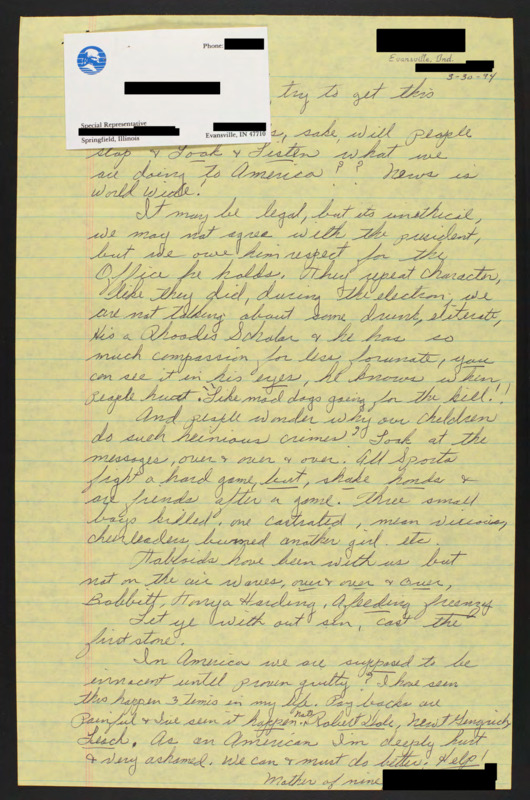 Phone:
Special Representative
Springfield, Illinois
Evansville, IN 47710
Evansville, Ind.
3-30-94
, try to get this
s, sake, will people
stop & Look & Listen what we
are doing to America ? ? News is
World Wide.
It may be legal, but its unethical,
we may not agree with the president,
but we owe him respect for the
Office he holds. They repeat character,
like they did, during the election, we
are not talking about some drunk, eliterate,
His a Rhoades Scholar & he has so
much compassion for less forunate, you
can see it in his eyes, he knows when
people hurt. "Like mad dogs going for the kill."!!
And people wonder why our children
do such heinious crimes?? Look at the
messages, over & over & over. All Sports
fight a hard game, but, shake hands &
are friends after a game. Three small
boys killed, one castrated, mean vicious,
cheerleaders burned another girl. etc.
Tabloids have been with us but
not on the air waves, over & over & over,
Bobbitt, Tonya Harding, A feeding freenzy
Let ye with out sin, cast the
first stone.
In America we are supposed to be
innocent until proven guilty? I have seen
this happen 3 temis in my life. Pay backs are
Painful & I've seen it happen. Note Robert Dole, Newt Gengrich
Leach. As an American I'm deeply hurt
& very ashamed. We can & must do better. Help!
Mother of nine